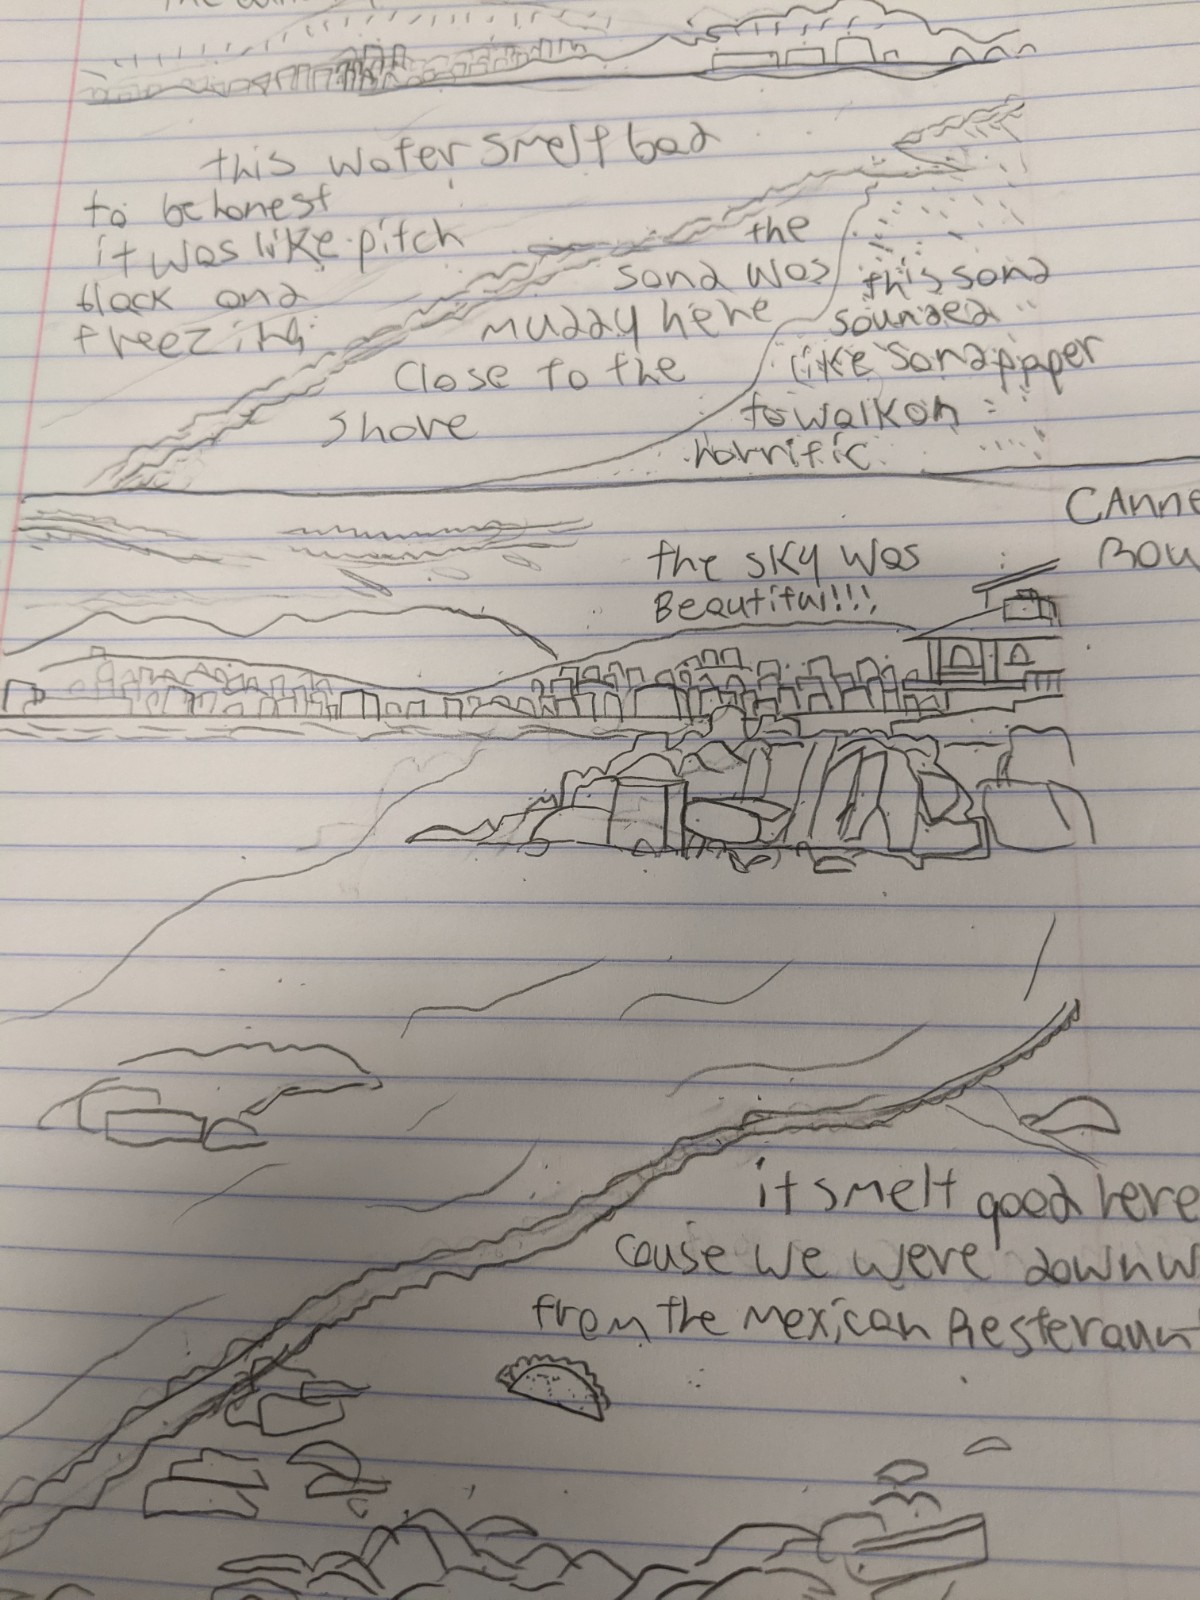 this water smelt bad
to be honest
it was like pitch
black and
freezing
the
sand was
muddy here
close to the
shore
this sand
sounded
like sandppper
to walk on
horrific
CAnne
ROW
the sky was
Beautiful!!!
it smelt good here
cause we were downw
from the Mexican Resteraunt